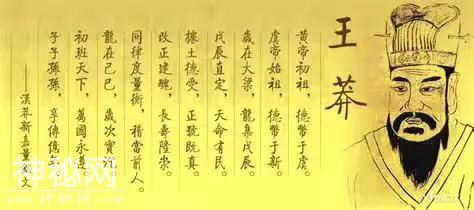 王莽
黃帝初祖，德幣于虞。
虞帝始祖，德幣于新。
歲在大梁，龍集戊辰。
戊辰直定，天命有民。
據土德受，正號既真。
改正建醜，長壽隆崇。
同律度量衡，稽當前人。
龍在己巳，歲次實
初班天下，萬國永
子子孫孫，享傳億年
——漢莽新嘉量銘文
神秘网